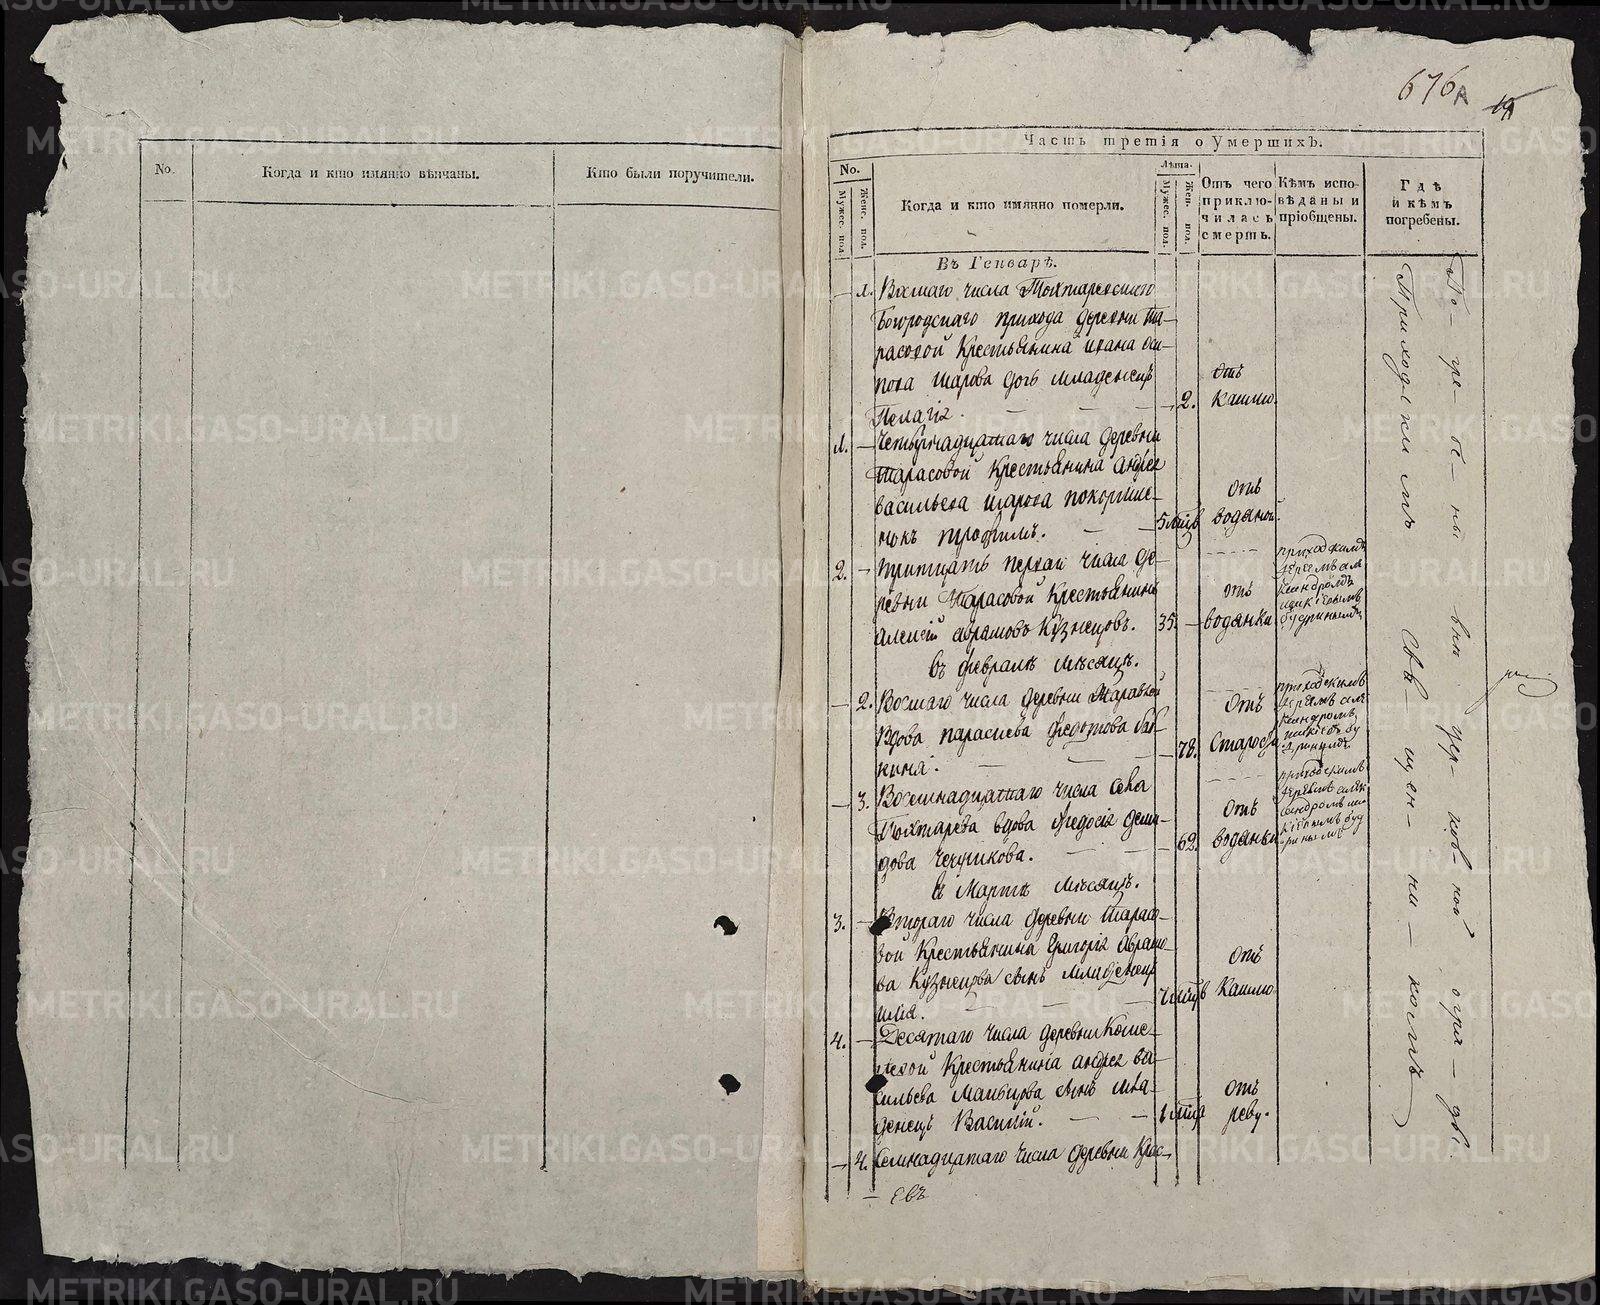 No.
Когда и кто имянно вѣнчаны.
Кто были поручители.
676
А
19
Часть третія о Умершихъ.
No.
Мужес. пол.
Женс. пол.
Когда и кто имянно померли.
Лѣта.
Мужес. пол.
Жен. пол.
Отъ чего
приклю-
чилась
смерть.
Кѣмъ испо-
вѣданы и
пріобщены.
Гдѣ
и кѣмъ
погребены.
Въ Генварѣ.
— 1. Восмаго числа Тохтаревскаго
Богородскаго прихода деревни Та-
расовой Крестьянина ивана оси-
пова шарова дочь младенецъ
Пелагія. — — — 2.
отъ
кашлю.
1. — Четырнадцатаго числа деревни
Тарасовой Крестьянина андрея
васильева шарова покормле-
нокъ трофимъ. — — 5 мѣцъ
отъ
водяной.
2. — тритцать перваго числа де-
ревни Тарасовой Крестьянинъ
алексій аврамовъ Кузнецовъ. 35. —
отъ
водянки
приходскимъ
іереемъ але
ксандромъ
въ февралѣ мѣсяцѣ.
— 2. Восмаго числа деревни
Вдова параскева федотова
кина. — — — 78.
отъ
Старости
приходскимъ
іереемъ але
ксандромъ
— 3. Восемнадцатаго числа села
Тохтарева вдова Федосія деми-
дова чечулкова. — — — 62.
отъ
водянки
приходскимъ
іереемъ алек
сандромъ
въ Мартѣ мѣсяцѣ.
3. — Втораго числа деревни Тарасо-
вой Крестьянина Григорія Аврамо-
ва Кузнецова сынъ младенецъ
илія. — —
отъ
Кашлю
4. — Десятаго числа деревни
Крестьянина андрея ва-
сильева Мальцова сынъ мла-
денецъ Василій. — — 1
отъ
реву.
— 4. Семнадцатаго числа деревни Крас-
— евъ
По-гре-бе-ны въ цер-ков-ной огра-дѣ,
Приходскимъ Свя-щен-ни-комъ